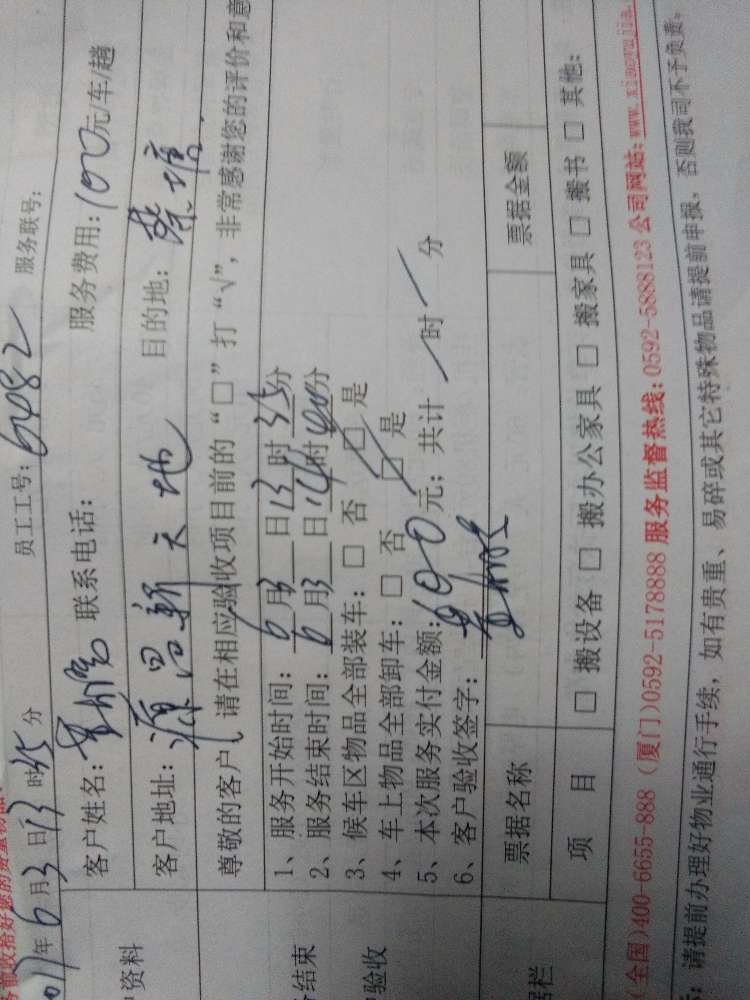 前收拾好您的贵重物品
017年6月3日13时35分 员工工号:6482 服务联号:
客户姓名: 联系电话: 服务费用:100元/车/趟
户资料
客户地址:源昌新天地 目的地:蔡塘
尊敬的客户,请在相应验收项目前的“□”打“√”,非常感谢您的评价和意
1、服务开始时间:6月3日13时35分
2、服务结束时间:6月3日14时40分
务结束
3、候车区物品全部装车:□ 否 □ 是
户验收
4、车上物品全部卸车:□ 否 □ 是
5、本次服务实付金额:600元;共计 时 分
6、客户验收签字:
据栏
票据名称 票据金额
项 目 □ 搬设备 □ 搬办公家具 □ 搬家具 □ 搬书 □ 其他:
(全国)400-6655-888 (厦门)0592-5178888 服务监督热线:0592-5888123 公司网站:www.xiaoyujia.
:请提前办理好物业通行手续,如有贵重、易碎或其它特殊物品请提前申报,否则我司不予负责。